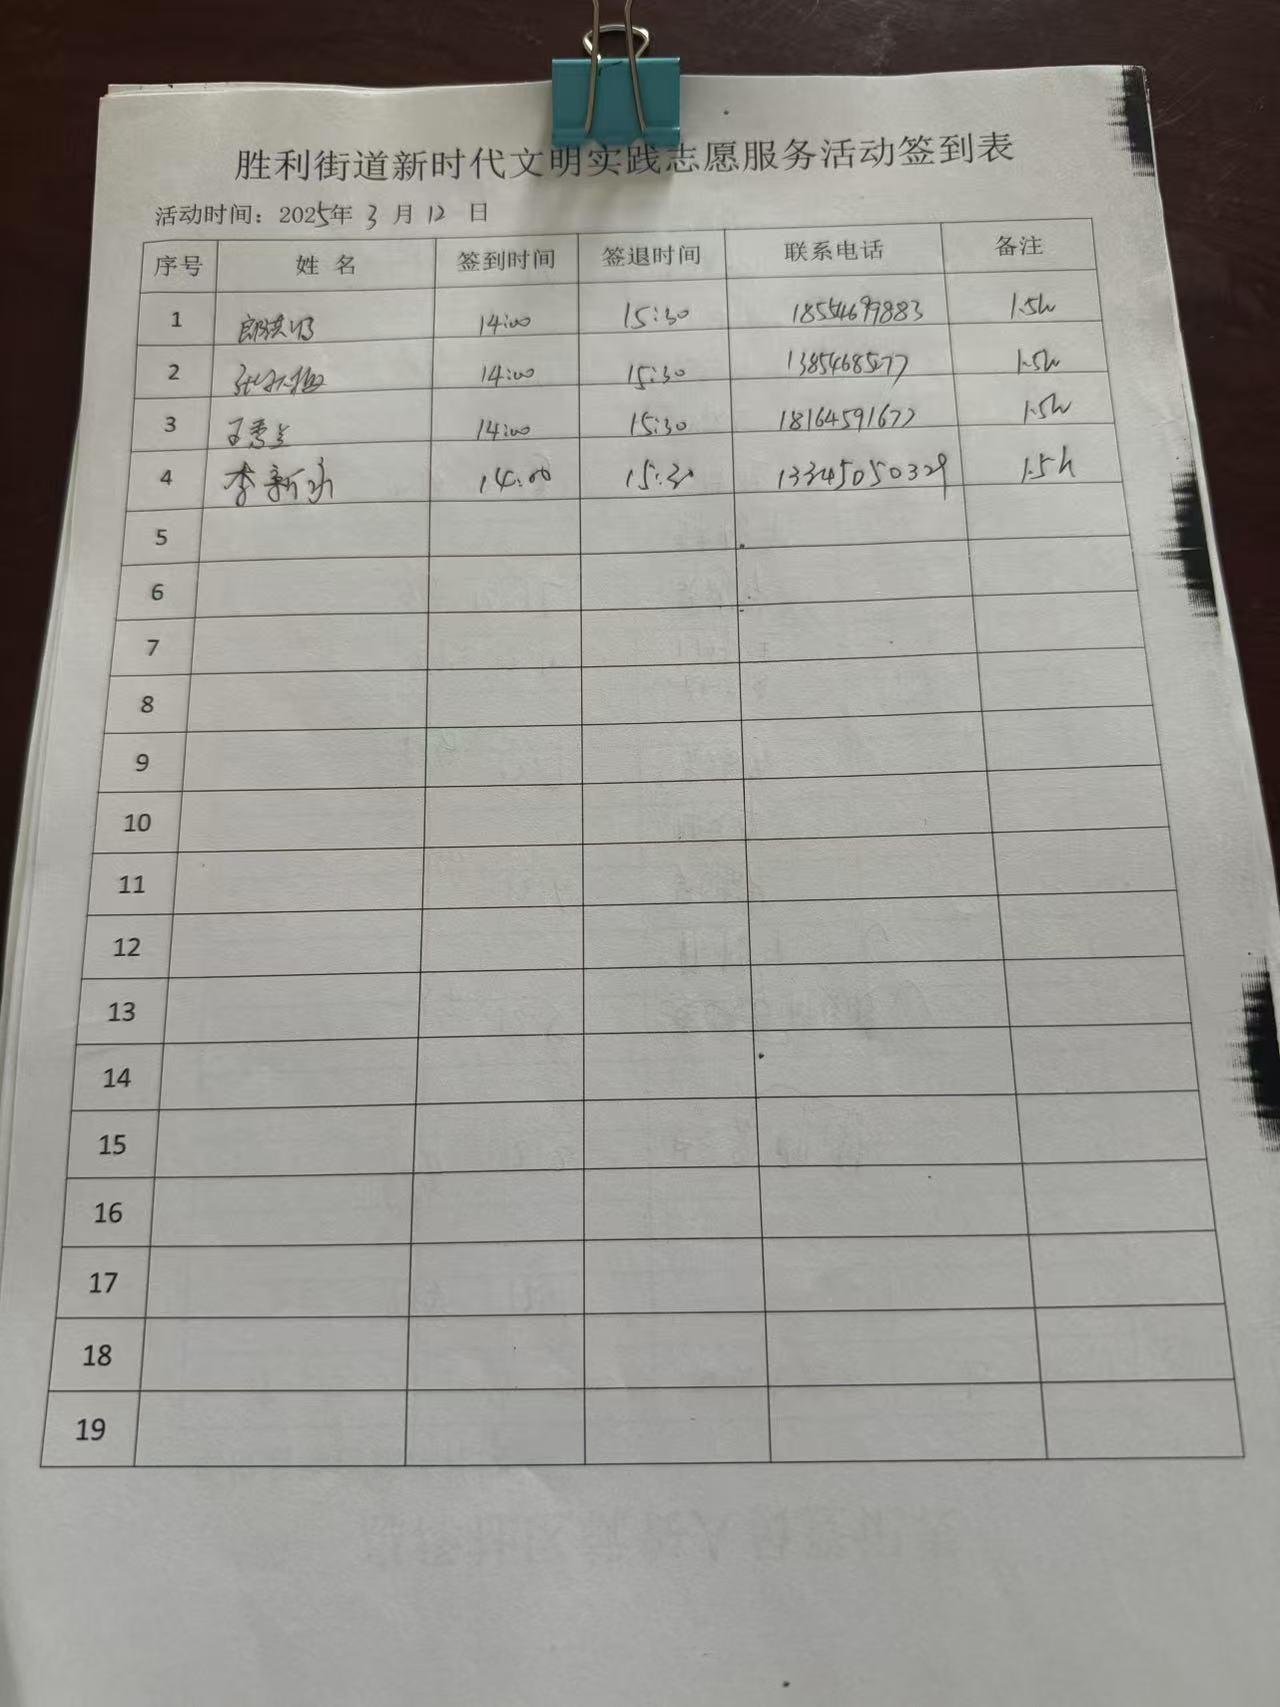 胜利街道新时代文明实践志愿服务活动签到表
活动时间：2025年 3 月 12 日
序号 姓 名 签到时间 签退时间 联系电话 备注
1 14:00 15:30 18554699883 1.5h
2 14:00 15:30 1.5h
3 王秀兰 14:00 15:30 18164591677 1.5h
4 李新永 14:00 15:30 13345050329 1.5h
5
6
7
8
9
10
11
12
13
14
15
16
17
18
19